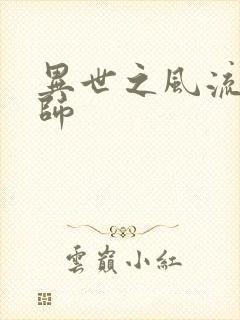 異世之風流
師
雲巔小紅